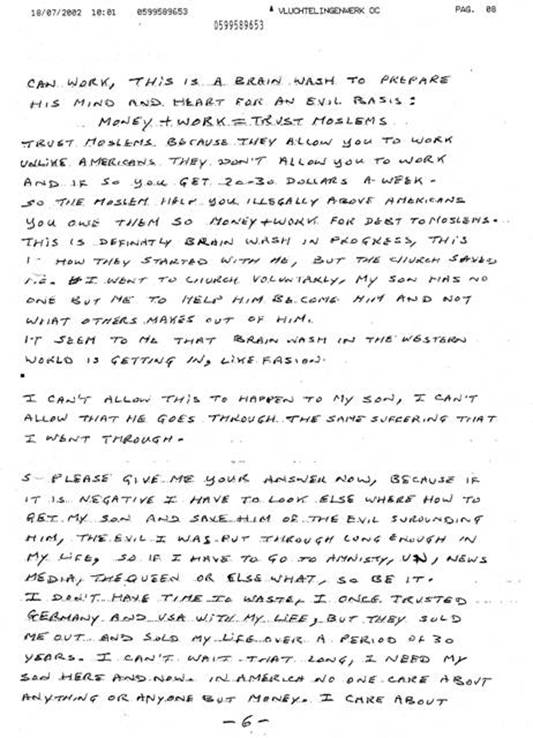 18/07/2002 10:01 0599589653 VLUCHTELINGENWERK OC PAG. 08
0599589653
CAN WORK, THIS IS A BRAIN WASH TO PREPARE
HIS MIND AND HEART FOR AN EVIL BASIS:
MONEY + WORK = TRUST MOSLEMS
TRUST MOSLEMS BECAUSE THEY ALLOW YOU TO WORK
UNLIKE AMERICANS THEY DON'T ALLOW YOU TO WORK
AND IF SO YOU GET 20-30 DOLLARS A WEEK.
SO THE MOSLEM HELP YOU ILLEGALLY ABOVE AMERICANS
YOU OWE THEM SO MONEY + WORK FOR DEBT TO MOSLEMS.
THIS IS DEFINATLY BRAIN WASH IN PROGRESS, THIS
HOW THEY STARTED WITH ME, BUT THE CHURCH SAVED
I WENT TO CHURCH VOLUNTARLY, MY SON HAS NO
ONE BUT ME TO HELP HIM BECOME HIM AND NOT
WHAT OTHERS MAKES OUT OF HIM.
IT SEEM TO ME THAT BRAIN WASH IN THE WESTERN
WORLD IS GETTING IN, LIKE FASION.
I CAN'T ALLOW THIS TO HAPPEN TO MY SON, I CAN'T
ALLOW THAT HE GOES THROUGH THE SAME SUFFERING THAT
I WENT THROUGH.
5- PLEASE GIVE ME YOUR ANSWER NOW, BECAUSE IF
IT IS NEGATIVE I HAVE TO LOOK ELSE WHERE HOW TO
GET MY SON AND SAVE HIM OF THE EVIL SUROUNDING
HIM, THE EVIL I WAS PUT THROUGH LONG ENOUGH IN
MY LIFE, SO IF I HAVE TO GO TO AMNISTY, UN, NEWS
MEDIA, THE QUEEN OR ELSE WHAT, SO BE IT.
I DON'T HAVE TIME TO WASTE, I ONCE TRUSTED
GERMANY AND USA WITH MY LIFE, BUT THEY SOLD
ME OUT AND SOLD MY LIFE OVER A PERIOD OF 30
YEARS. I CAN'T WAIT THAT LONG, I NEED MY
SON HERE AND NOW. IN AMERICA NO ONE CARE ABOUT
ANYTHING OR ANYONE BUT MONEY. I CARE ABOUT
-6-